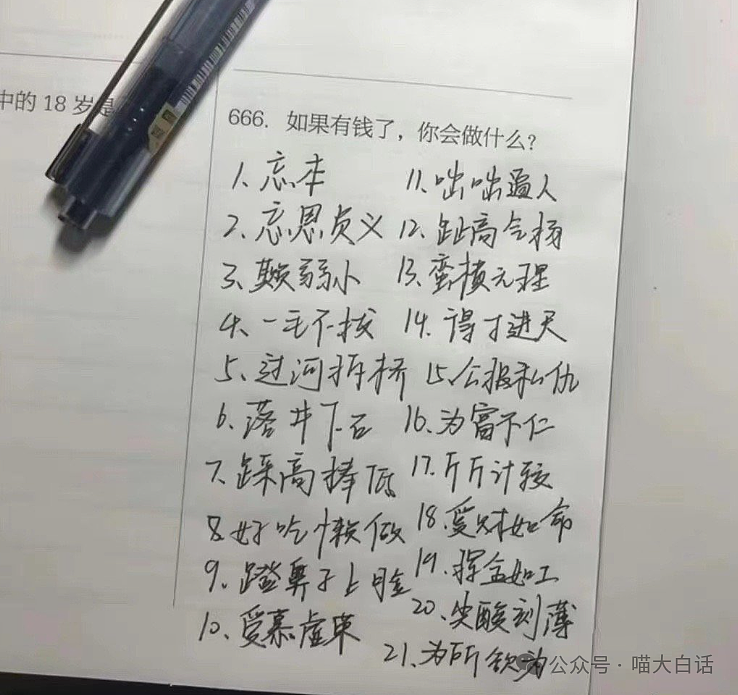 中的 18 岁是
666. 如果有钱了，你会做什么？
1、忘本
2、忘恩负义
3、欺弱小
4、一毛不拔
5、过河拆桥
6、落井下石
7、踩高捧低
8、好吃懒做
9、蹬鼻子上脸
10、爱慕虚荣
11、咄咄逼人
12、趾高气扬
13、蛮横无理
14、得寸进尺
15、公报私仇
16、为富不仁
17、斤斤计较
18、爱财如命
19、挥金如土
20、尖酸刻薄
21、为所欲为
公众号·喵大白话